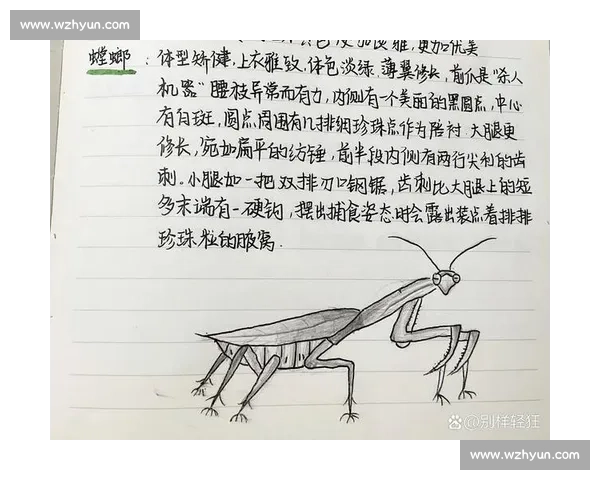 www.wzhyun.com
更加优美
螳螂：体型矫健，上衣雅致，体色淡绿，薄翼修长，前爪是“杀人
机器”腰肢异常而有力，内侧有一个美丽的黑圆点，中心
有白斑，圆点周围有几排细珍珠点作为陪衬.大腿更
修长，宛如扁平的纺锤，前半段内侧有两行尖利的齿
刺。小腿如一把双排刃口钢锯，齿刺比大腿上的短
多末端有一硬钩，摆出捕食姿态时会露出装点着排排
珍珠粒的腋窝.
百度 @别样轻狂
www.wzhyun.com